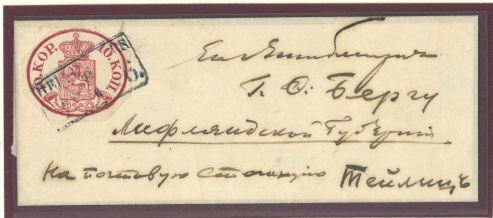 10.KOP. 10.КОП.
Г. Ѳ. Бергу
Лифляндской Губернiи
На почтовую станцiю Тейлицъ